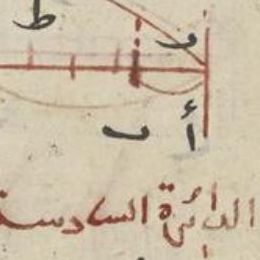 ط
ر
أ ب
الدائرة السادسة